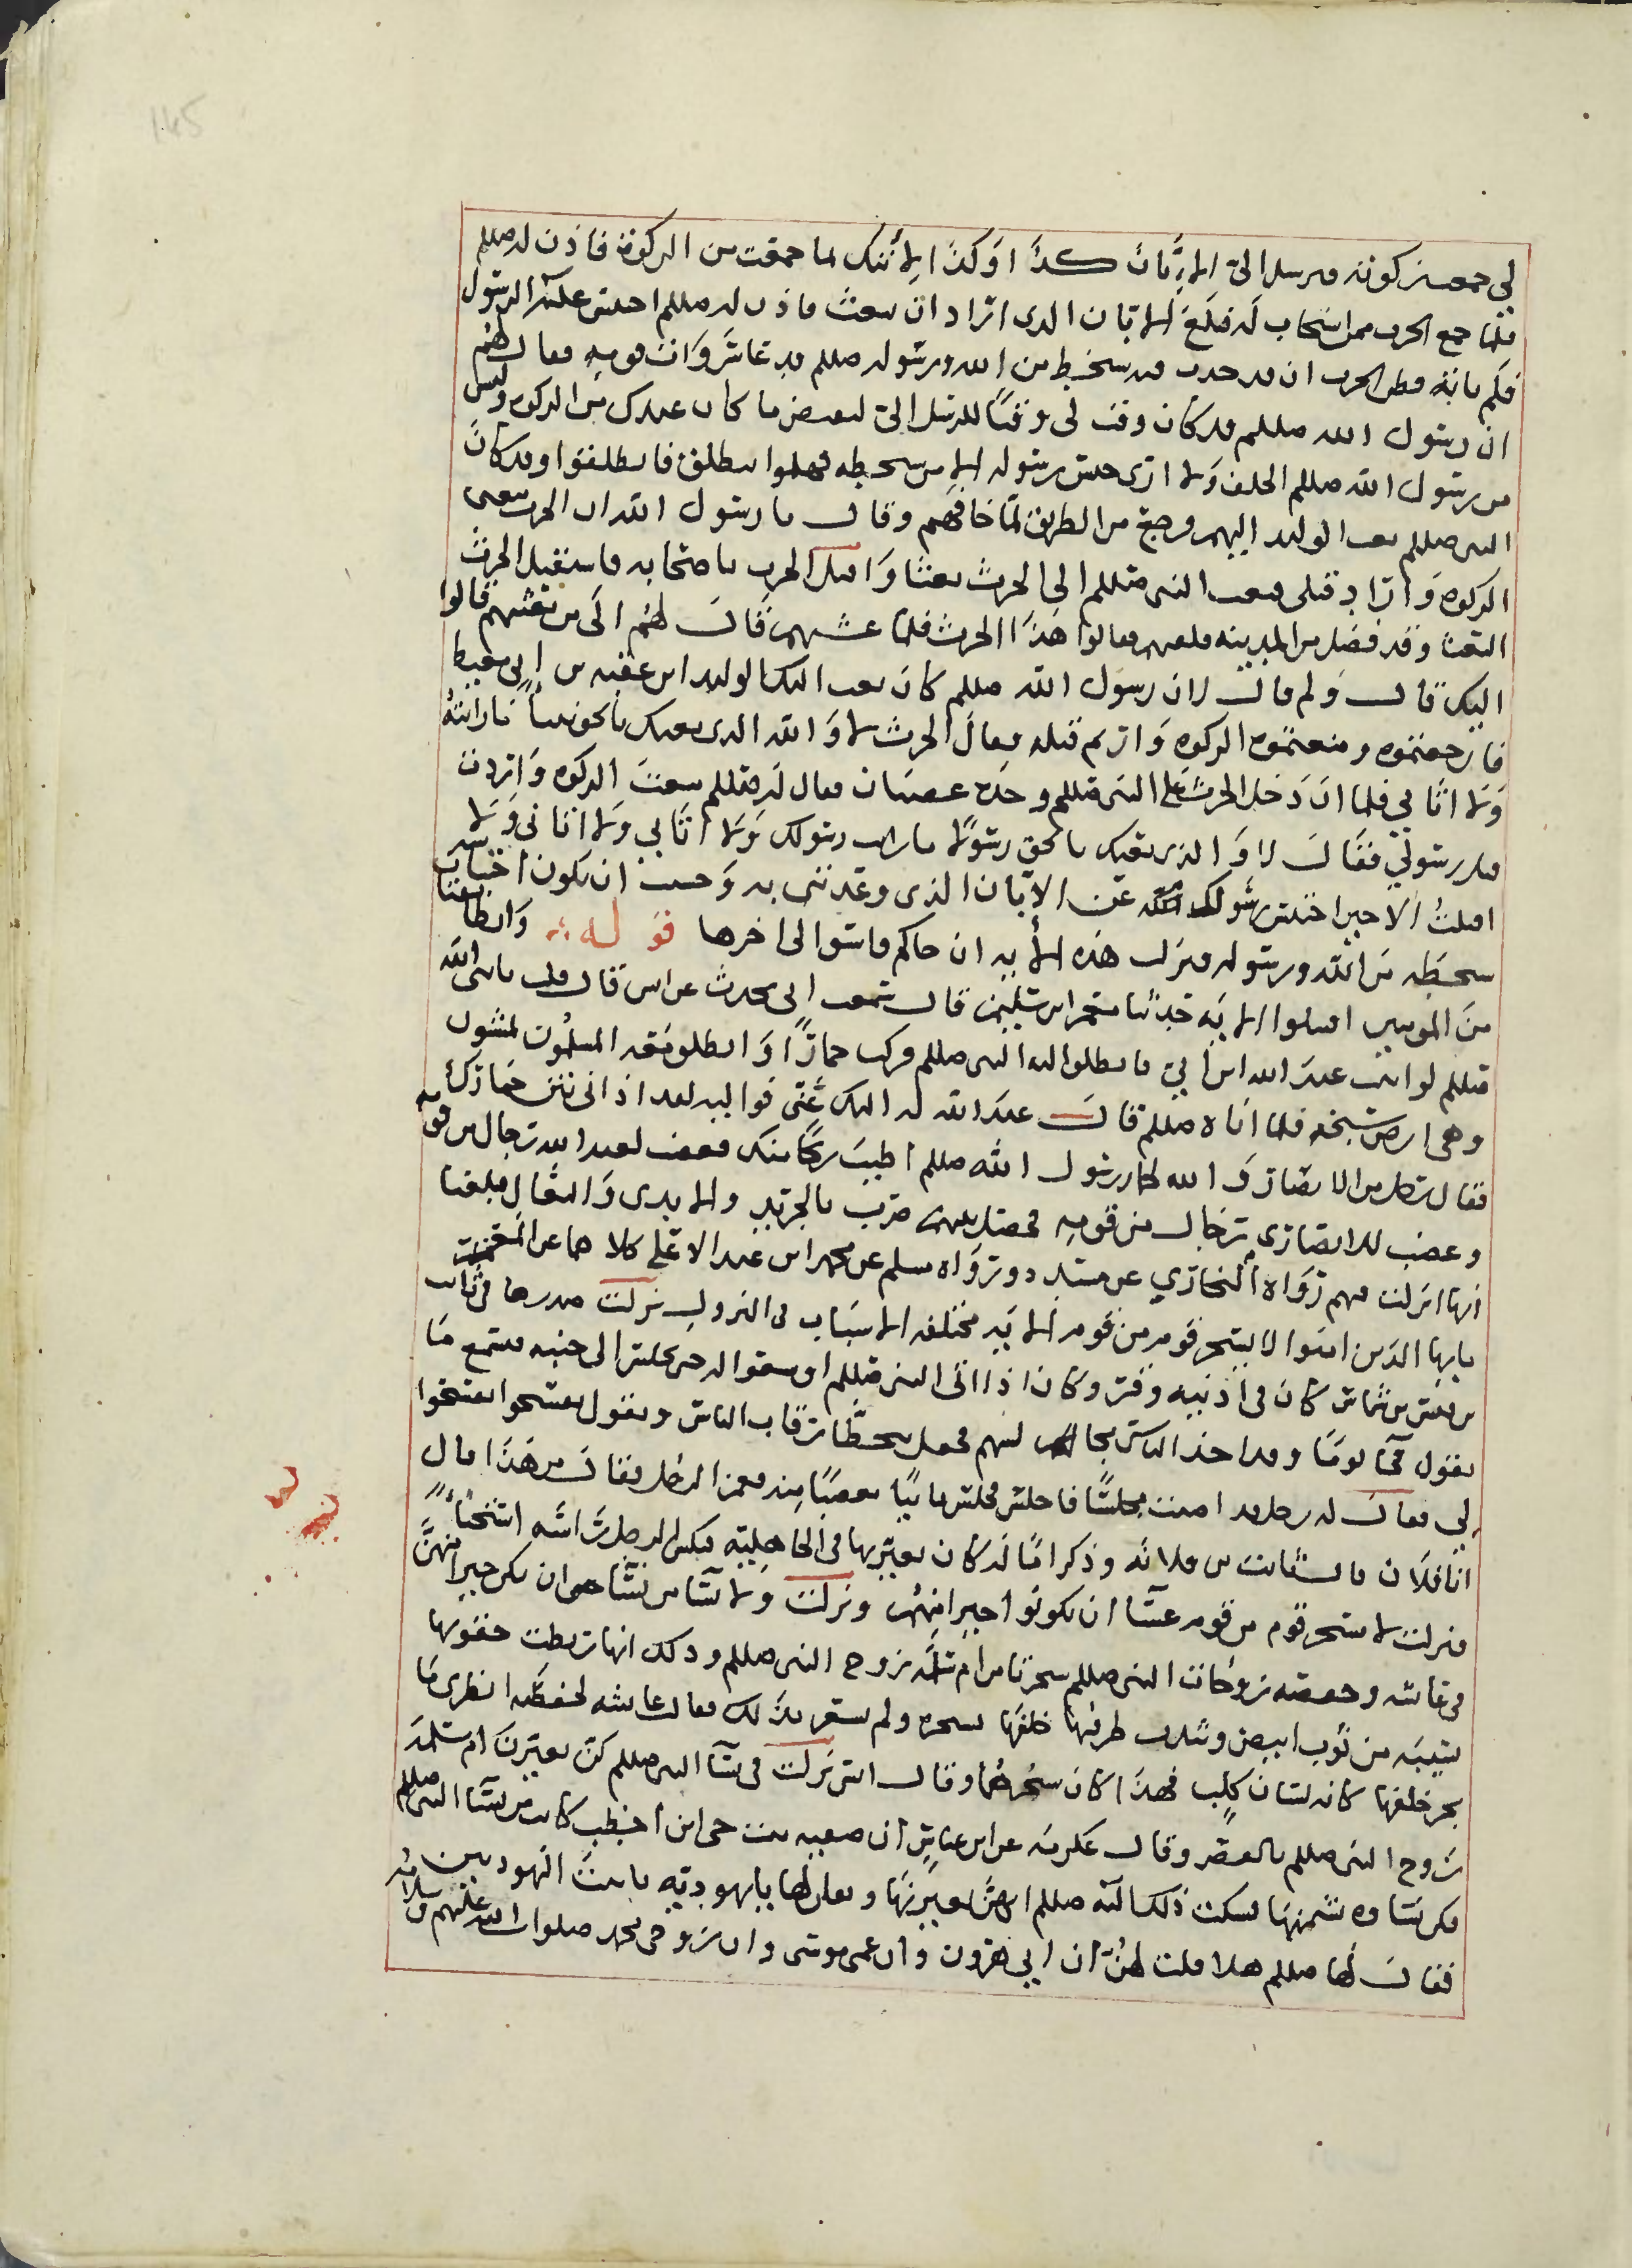 لي جمعت زكوته فترسل الي لابان كذا وكذا لاتيك بما جمعت من الزكوة فاذن له صللم
فلما جمع الحرث ممن استجاب له فبلغ الابان الذي اراد ان يبعث فاذن له صللم احتبس عليه الرسول
فلم ياته فظن الحرث ان قد حدث فيه سخط من الله ورسوله صللم فدعا سروات قومه فقال لهم
ان رسول الله صللم قد كان وقت لي وقتا ليرسل الي ليقبض ما كان عندي من الزكوة وليس
من رسول الله صللم الخلف ولا ارى حبس رسوله الا من سخطه فهلموا ننطلق فانطلقوا وقد كان
النبي صللم بعث الوليد اليهم ورجع من الطريق لما خافهم وقال يا رسول الله ان الحرث منعني
الزكوة واراد قتلي فبعث النبي صللم الى الحرث بعثا واقبل الحرث باصحابه فاستقبل الحرث
البعث وقد فصل من المدينة فلقيهم فقالوا هذا الحرث فلما غشيهم قال لهم الى من بعثتم قالوا
اليك قال ولم قال ان رسول الله صللم كان بعث اليك الوليد ابن عقبه بن ابي معيط
فارجعتموه ومنعتموه الزكوة واردتم قتله فقال الحرث لا والله الذي بعثك بالحق نبيا ما رايته
ولا اتاني فلما ان دخل الحرث على النبي صللم وجده غضبان فقال له صللم منعت الزكوة واردت
قتل رسولي فقال لا والذي بعثك بالحق رسولا ما رايت رسولك ولا اتاني ولا
اقبلت الا حين احتبس رسولك عن الابان الذي وعدتني به وخشيت ان يكون
سخطه من الله ورسوله فنزلت هذه الاية ان جاكم فاسق الى اخرها قوله وان طائفتان
من المومنين اقتتلوا الاية حدثنا معتمر ابن سليمن قال سمعت ابي يحدث عن انس قال قلت يا نبي الله
صللم لو اتيت عبد الله ابن ابي فانطلق اليه النبي صللم فركب حمارا وانطلق معه المسلمون يمشون
وهي ارض سبخة فلما اتاه صللم قال عبد الله له اليك عني فوالله لقد اذاني نتن حمارك
فقال رجل من الانصار والله لحمار رسول الله صللم اطيب ريحا منك فغضب لعبد الله رجال من قومه
وغضب للانصاري رجال من قومه فحصل بينهم ضرب بالجريد والايدي والنعال فبلغنا
انها انزلت فيهم رواه البخاري عن مسدد ورواه مسلم عن محمد ابن عبد الاعلى كلاهما عن المعتمر
يايها الذين امنوا لا يسخر قوم من قوم الاية مختلفه الاسباب في النزول نزلت صدرها في ثابت
بن قيس بن شماس كان في اذنيه وقر وكان اذا اتى النبي صللم اوسعوا له حتى يجلس الى جنبه فيسمع ما
يقول فجا يوما وقد اخذ الناس مجالسهم فجعل يتخطا رقاب الناس ويقول تفسحوا تفسحوا
لي فقال له رجل قد اصبت مجلسا فاجلس فجلس ثابتا مغضبا منه فغمز الرجل وقال من هذا قال
انا فلان قال ثابت بن فلانه وذكر اما له كان يعير بها في الجاهلية فنكس الرجل راسه استحيا
فنزلت لا يسخر قوم من قوم عسا ان يكونوا خيرا منهم ونزلت ولا نسا من نسا عسا ان يكن خيرا منهن
في عايشه وحفصه زوجات النبي صللم سخرتا من ام سلمة زوج النبي صللم وذلك انها ربطت حقويها
بسبيبة من ثوب ابيض وسدلت طرفها خلفها تجره ولم تشعر بذلك فقالت عايشه لحفصه انظري ما
يجر خلفها كانه لسان كلب فهذا كان سخرهما وقال انس نزلت في نسا النبي صللم كن يعيرن ام سلمة
زوج النبي صللم بالقصر وقال عكرمه عن ابن عباس ان صفيه بنت حيي ابن اخطب كانت من نسا النبي صللم
فكن نساوه يشتمنها فشكت ذلك اليه صللم انهن يعيرنها وتقلن لها يا يهودية يا بنت اليهوديين
فقال لها صللم هلا قلت لهن ان ابي هرون وان عمي موسى وان زوجي محمد صلوات الله عليهم وسلامه